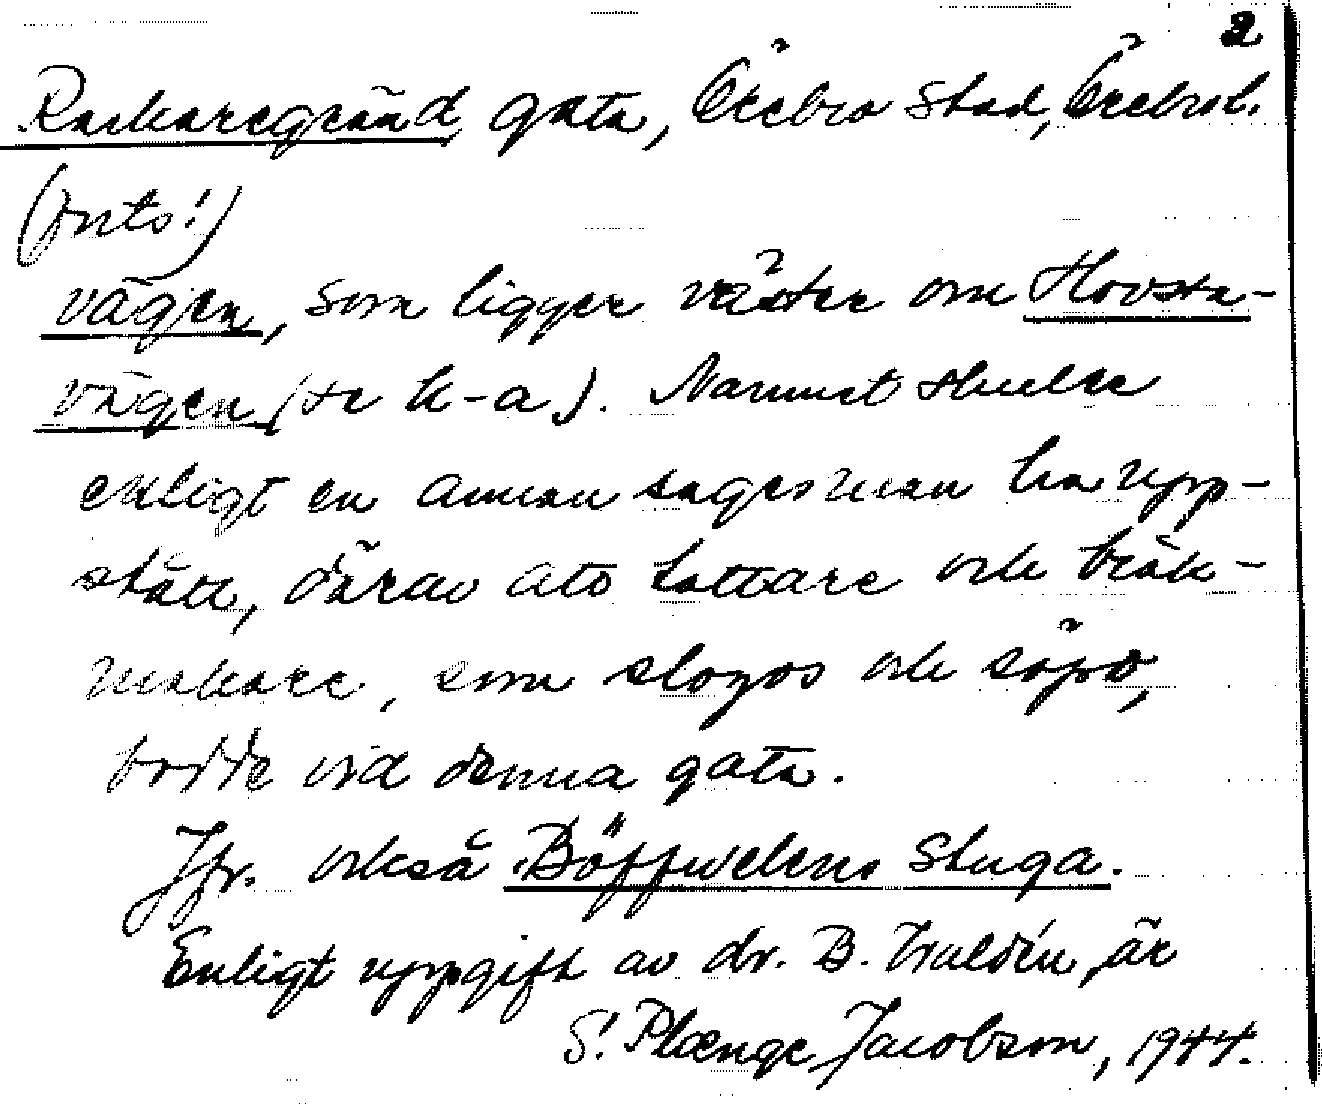 2
Rackaregränd gata, Örebro stad, Örebro l.
(forts!)
vägen, som ligger väster om Hovsta-
vägen (se k-a). Namnet skulle
enligt en annan sagesman ha upp-
stått, därav att tattare och bråk-
makare, som slogos och söpo,
bodde vid denna gata.
Jfr. också Böffwelens stuga.
Enligt uppgift av dr. B. Waldén, är
S. Plænge Jacobson, 1944.